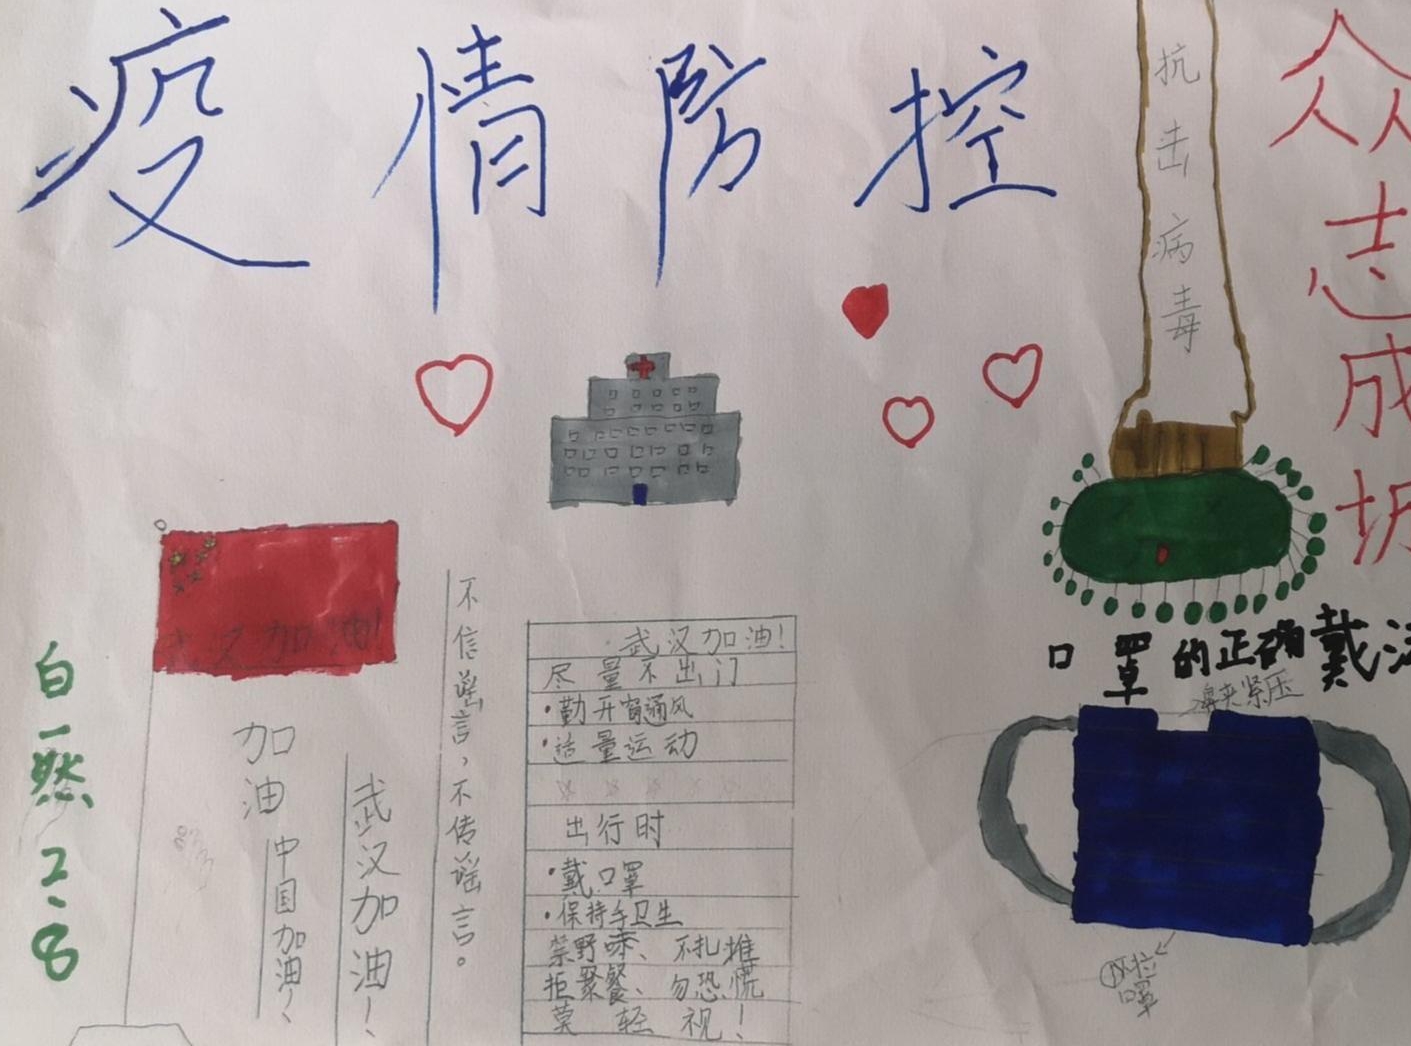 疫情防控
抗击病毒
众志成城
武汉加油!
白一然 2.8
加油
中国加油!
武汉加油!
不信谣言，不传谣言。
武汉加油!
尽量不出门
·勤开窗通风
·适量运动
出行时
·戴口罩
·保持手卫生
禁野味、不扎堆
拒聚餐、勿恐慌
莫轻视!
口罩的正确戴法
鼻夹紧压
口罩